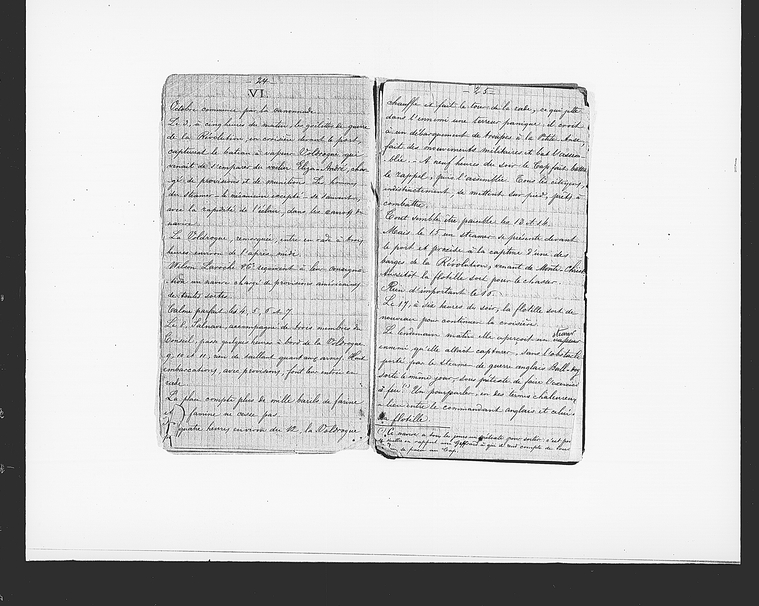 - 24 -
VI
Octobre commence par la canonnade.
Le 3, à cinq heures du matin, les goëlettes de guerre
de la Révolution, en croisière devant le port,
capturent le bateau à vapeur Voldrogue qui
venait de s'emparer du voilier Eliza-André, char-
gé de provisions et de munitions. Les hommes
du steamer - le mécanicien excepté - se sauvent,
avec la rapidité de l'éclair, dans les canots du
navire.
La Voldrogue, remorquée, entre en rade à trois
heures environ de l'après-midi.
Wilson Laroche & Cie reçoivent à leur consigna-
tion un navire chargé de provisions américaines
de toutes sortes.
Calme parfait les 4, 5, 6 et 7.
Le 8, Salnave, accompagné de trois membres du
Conseil, passe quelques heures à bord de la Voldrogue
9, 10 et 11, rien de saillant quant aux armes. Huit
embarcations, avec provisions, font leur entrée en
rade.
La place compte plus de mille barils de farine
et famine ne cesse pas.
quatre heures environ du 12, la Voldrogue
- 25 -
chauffe et fait le tour de la rade, ce qui jette
dans l'ennemi une terreur panique: il croit
à un débarquement de troupes à la Petite-Anse,
fait des mouvements militaires et bat l'assem-
blée. - A neuf heures du soir le Cap fait battre
le rappel, puis l'assemblée. Tous les citoyens,
indistinctement, se mettent sur pied, prêts à
combattre.
Tout semble être paisible les 13 et 14.
Mais le 15 un steamer se présente devant
le port et procède à la capture d'une des
barges de la Révolution, venant de Monte-Christ
Aussitôt la flotille sort pour le chasser.
Rien d'important le 16.
Le 17, à six heures du soir, la flotille sort de
nouveau pour continuer la croisière.
Le lendemain matin elle aperçoit un steamer
ennemi qu'elle allait capturer, sans l'obstacle
porté par le steamer de guerre anglais Bull-dog
sorti le même jour, sous prétexte de faire l'exercice
à feu (1) Un pourparler, en des termes chaleureux
a lieu entre le commandant anglais et celui
la flotille.
(1) Ce navire a tous les jours un prétexte pour sortir: c'est pour
se mettre en rapport avec Geffrard à qui il rend compte de tout
ce qui se passe au Cap.